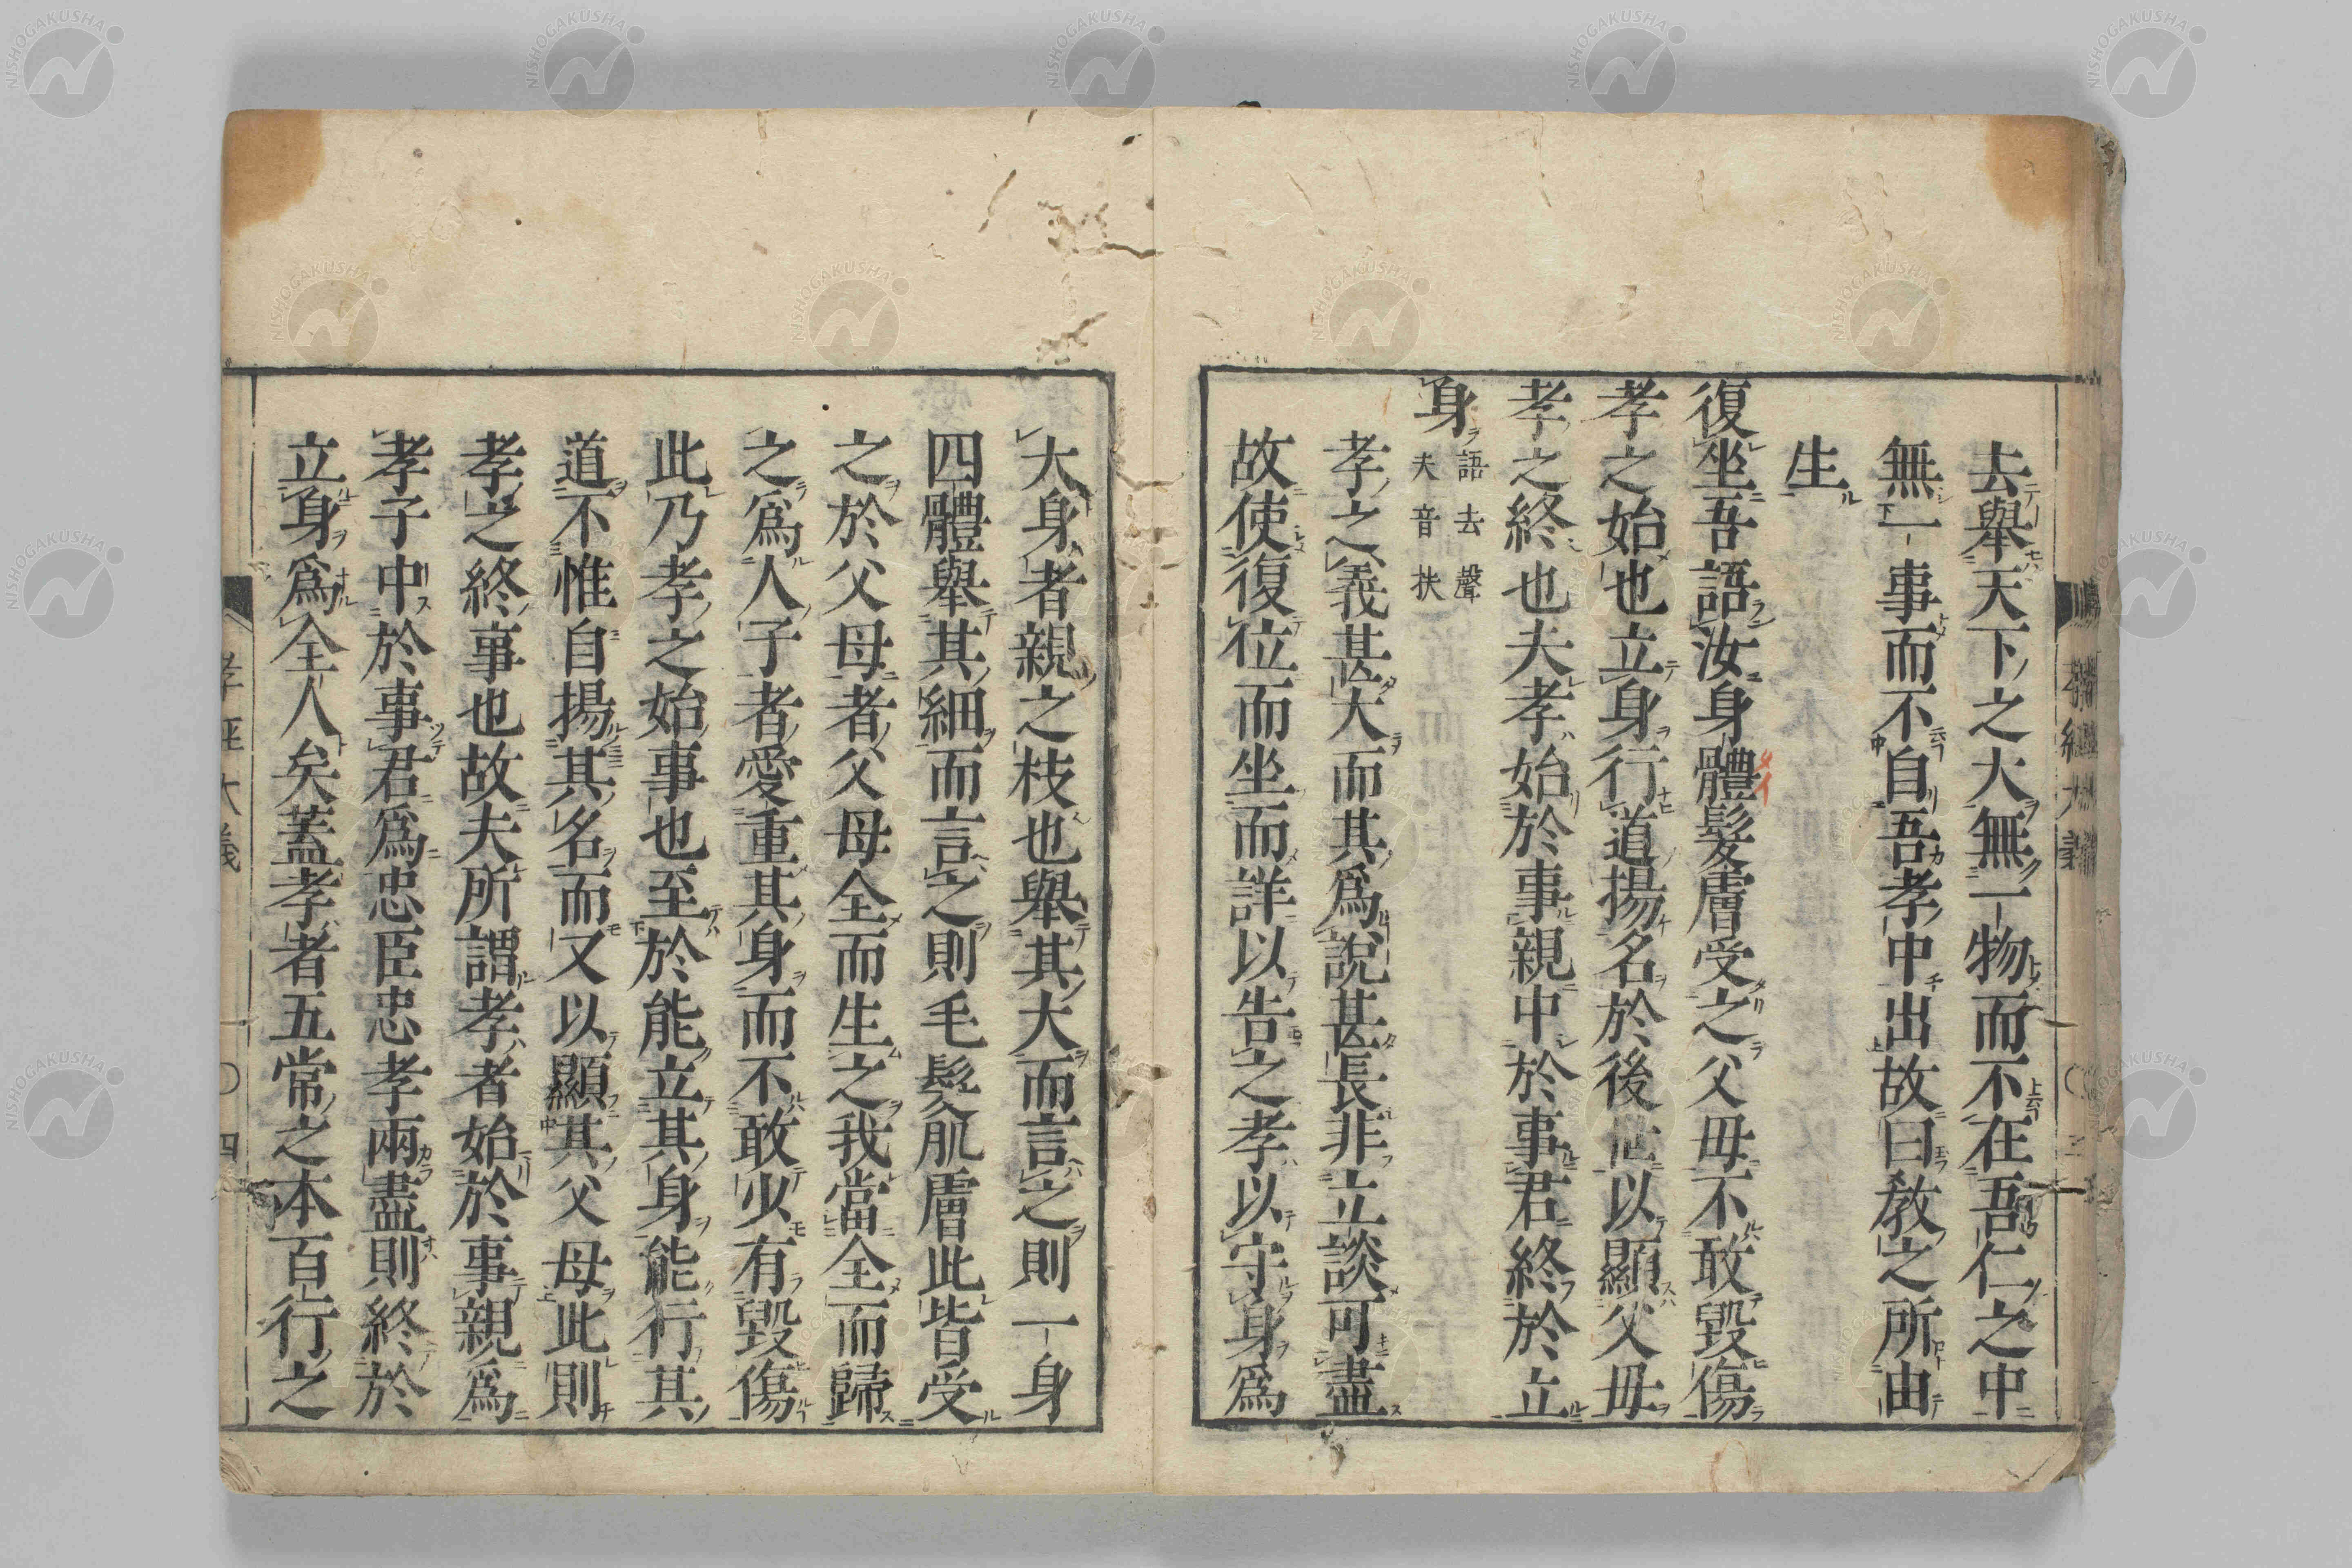 去舉天下之大無一物而不在吾仁之中
無一事而不自吾孝中出故曰敎之所由
生
復坐吾語汝身體髮膚受之父母不敢毀傷
孝之始也立身行道揚名於後世以顯父母
孝之終也夫孝始於事親中於事君終於立
身
語去聲
夫音扶
孝之義甚大而其爲說甚長非立談可盡
故使復位而坐而詳以告之孝以守身爲
大身者親之枝也舉其大而言之則一身
四體舉其細而言之則毛髮肌膚此皆受
之於父母者父母全而生之我當全而歸
之爲人子者愛重其身而不敢少有毀傷
此乃孝之始事也至於能立其身能行其
道不惟自揚其名而又以顯其父母此則
孝之終事也故夫所謂孝者始於事親爲
孝子中於事君爲忠臣忠孝兩盡則終於
立身爲全人矣蓋孝者五常之本百行之
孝經大義
四
NISHOGAKUSHA